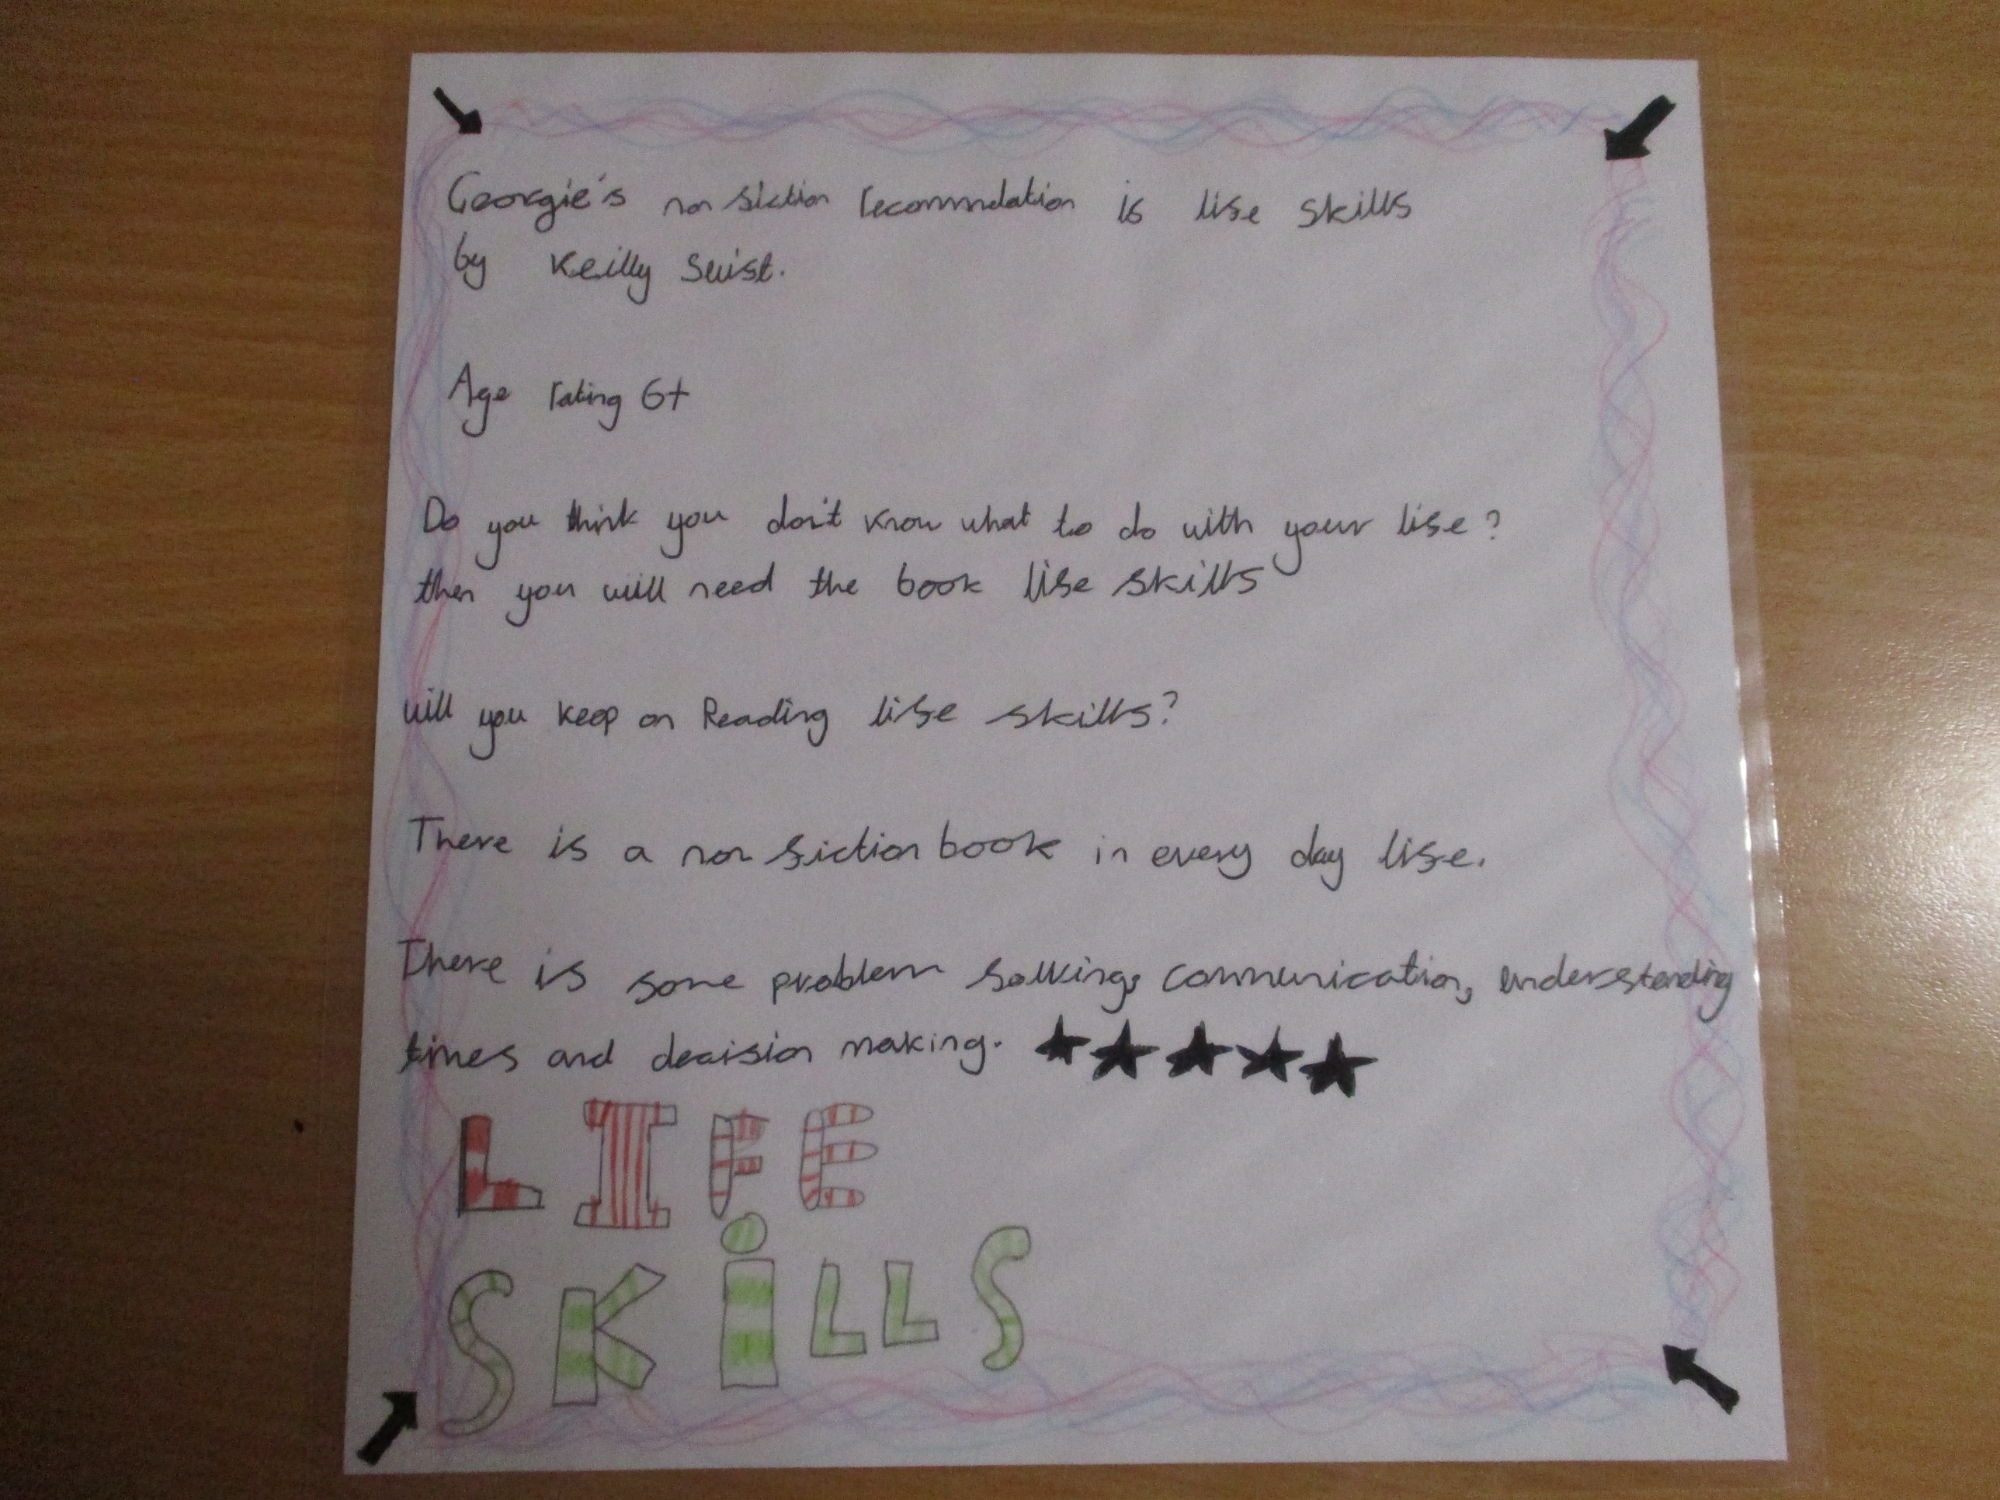 Georgie's non fiction recommdation is life skills
by Keilly Swift.
Age rating 6+
Do you think you don't know what to do with your life?
then you will need the book life skills
will you keep on Reading life skills?
There is a non fiction book in every day life.
There is some problem solving, communication, understanding
times and decision making.
LIFE
SKiLLS